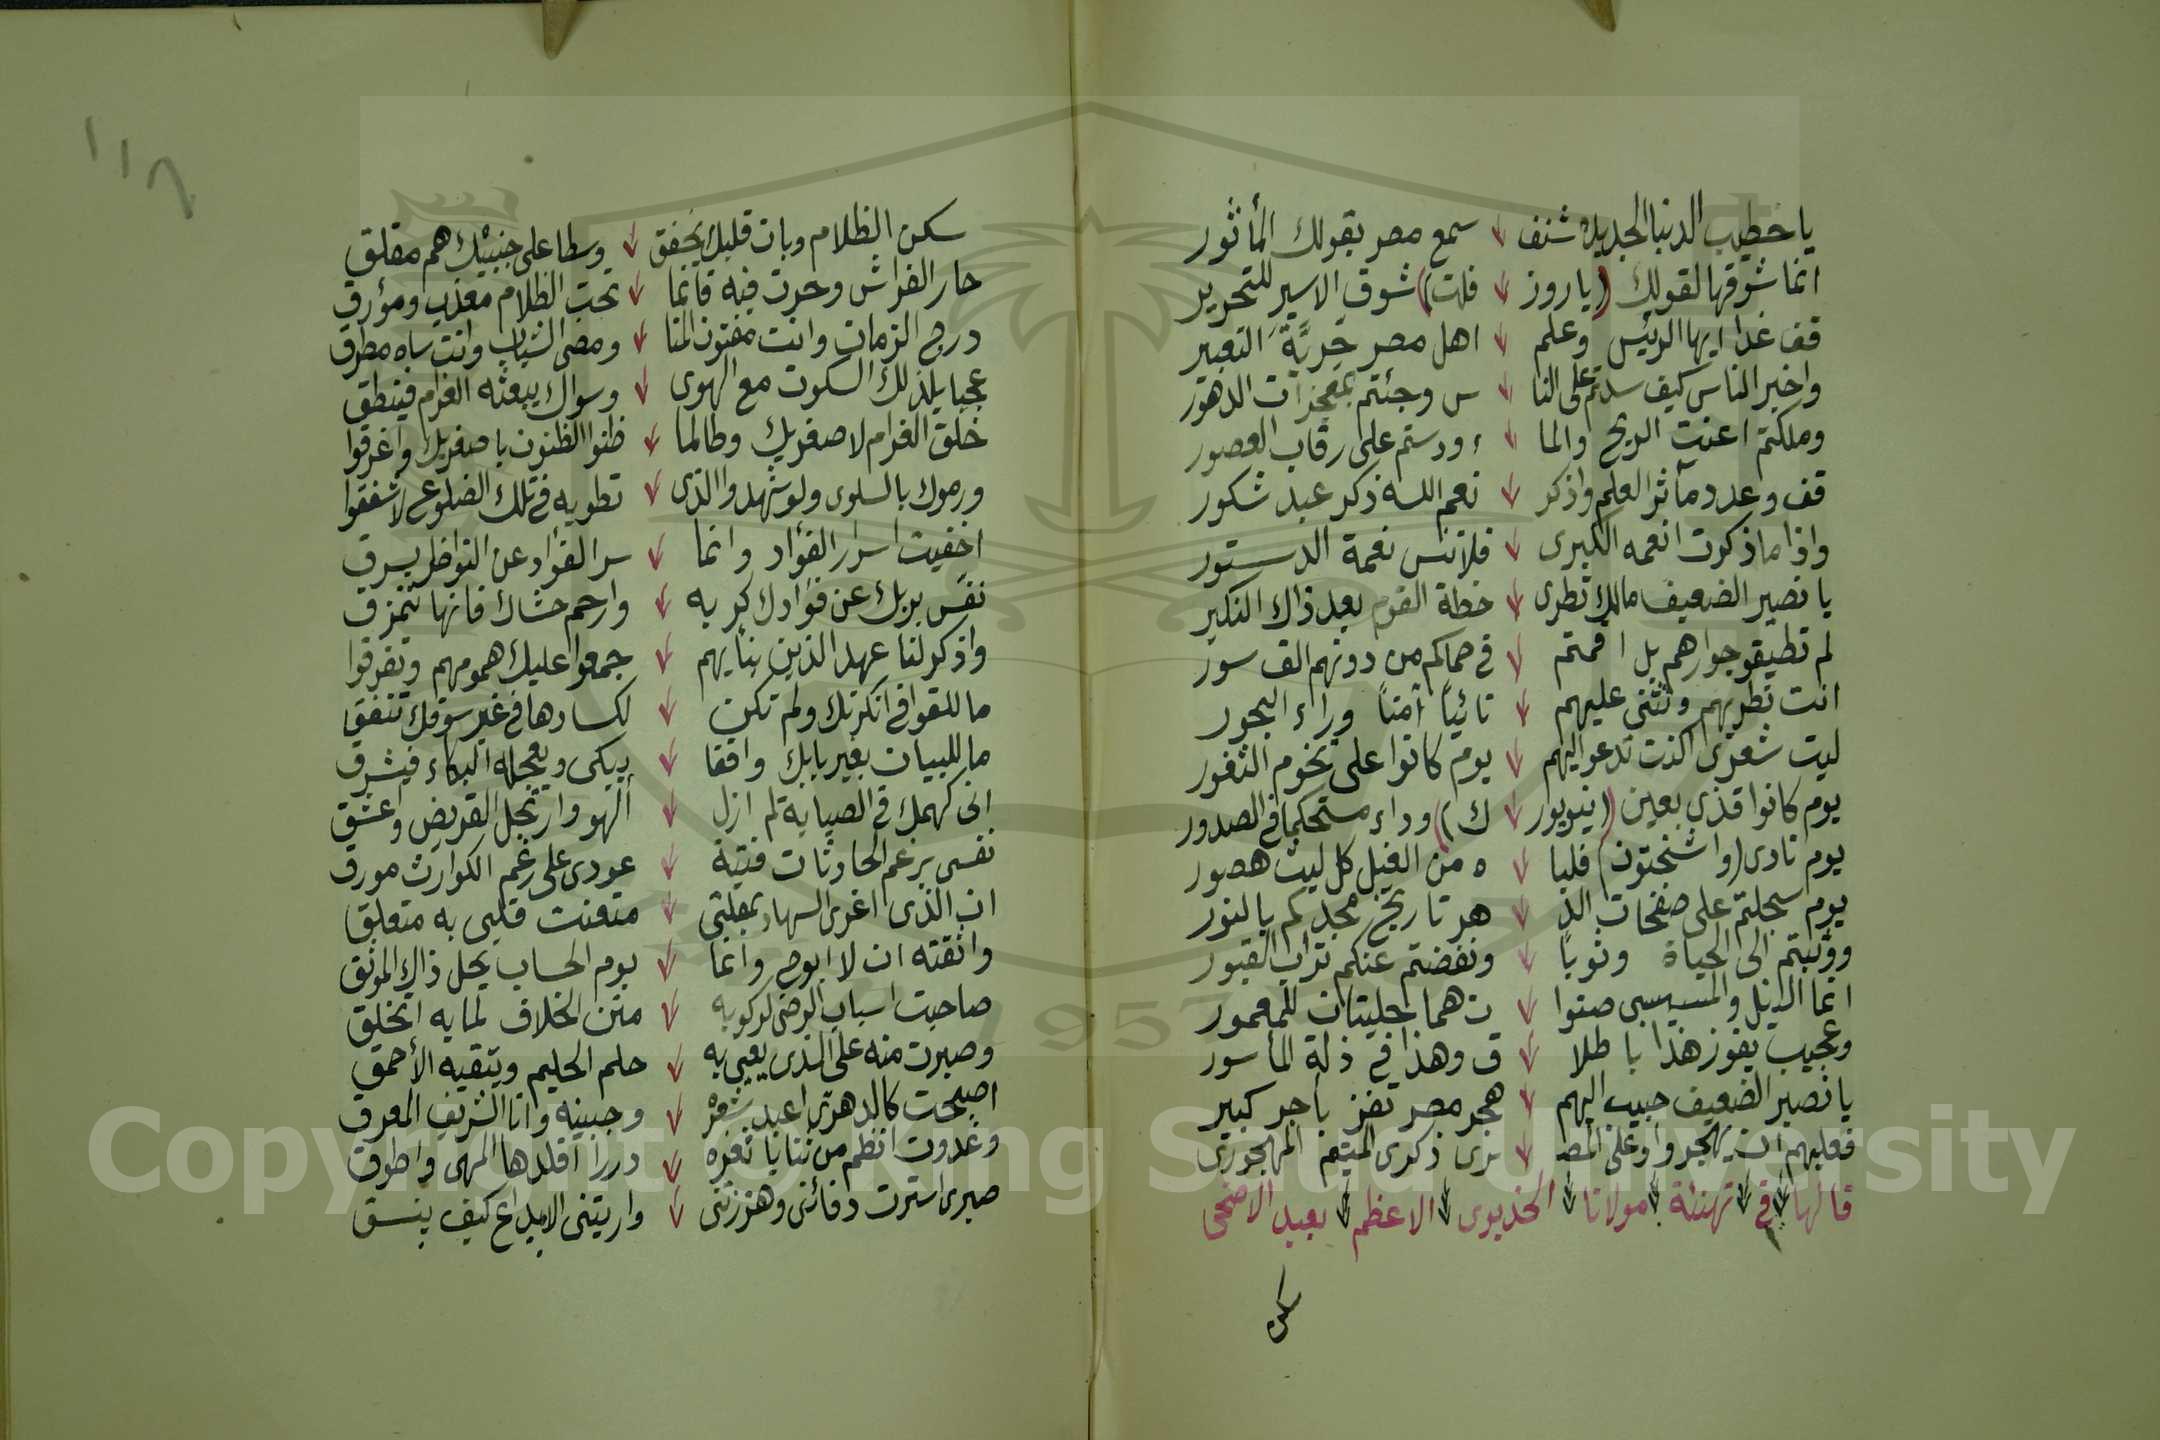 يا خطيب الدنيا الجديدة شنف سمع مصر بقولك المأثور
انما شوقها لقولك (يا روز فلت) شوق الاسير للتحرير
قف غدا ايها الرئيس وعلم اهل مصر حريّةَ التعبير
واخبر الناس كيف سدتم على النا س وجئتم بمعجزات الدهور
وملكتم اعنت الريح والما ء ودستم على رقاب العصور
قف وعدد مآثر العلم واذكر نعم الله ذكر عبد شكور
واذا ما ذكرت انعمه الكبرى فلا تنس نعمة الدستور
يا نصير الضعيف مالك تطرى خطة القوم بعد ذاك النكير
لم تطيقو جوارهم بل اقمتم في حماكم من دونهم الف سور
انت تطريهم وتثنى عليهم نائياً آمناً وراء البحور
ليت شعرى اكنت تدعو اليهم يوم كانوا على تخوم الثغور
يوم كانوا قذى بعين (نيويور ك) وداء مستحكما في الصدور
يوم نادى (واشنجتون) فلبا ه من الغيل كل ليث هصور
يوم سجلتم على صفحات الد هر تاريخ مجدكم بالنور
ووثبتم الى الحياة وثوباً ونفضتم عنكم تراب القبور
انما النيل والمسيسبى صنوا ن هما حليتان للمعمور
وعجيب يفوز هذا باطلا ق وهذا في ذلة المأسور
يا نصير الضعيف حبب اليهم هجر مصر تفز باجر كبير
فعليهم ان يهجروا وعلى المصـ ـرى ذكرى المتيم المهجور
قالها في تهنئة مولانا الخديوى الاعظم بعيد الاضحى
سكن
١١٢
سكن الظلام وبات قلبك يخفق وسطا على جنبيْك هم مقلق
حار الفراش وحرت فيه فانما تحت الظلام معذب ومؤرق
درج الزمان وانت مفتون المنا ومضى الشباب وانت ساه مطرق
عجبا يلذ لك السكوت مع الهوى وسواك يبعثه الغرام فينطق
خلق الغرام لاصغريك وطالما ظنوا الظنون باصغريك واغرقوا
ورموك بالسلوى ولو شهدوا الذى تطويه في تلك الضلوع لأشفقوا
اخفيت اسرار الفؤاد وانما سر الفؤاد عن النواظر يسرق
نفّس بربك عن فؤادك كربه وارحم حشاك فانها تتمزق
واذكر لنا عهد الذين بنأيهم جمعوا عليك همومهم وتفرقوا
ما للقوافى انكرتك ولم تكن لكسادها في غير سوقك تنفق
ما للبيان بغير بابك واقفا يبكى ويعجله البكاء فيشرق
انى كهمك في الصبابة لم ازل ألهو وارتجل القريض واعشق
نفسى برغم الحادثات فتية عودى على رغم الكوارث مورق
ان الذى اغرى السهاد بمقلتى متعنت قلبى به متعلق
واثقته ان لا ابوح وانما يوم الحساب يحل ذاك الموثق
صاحبت اسباب الرضى لركوبه متن الخلاف لما به اتخلق
وصبرت منه على الذى يعيى به حلم الحليم ويتقيه الأحمق
اصبحت كالدهرّى اعبد شعره وجبينه وانا الشريف المعرق
وغدوت انظم من ثنايا ثغره دررا اقلدها المهى واطوق
صبرى استرت دفائنى وهززتنى واريتنى الابداع كيف ينسق
Copyright © King Saud University
1957